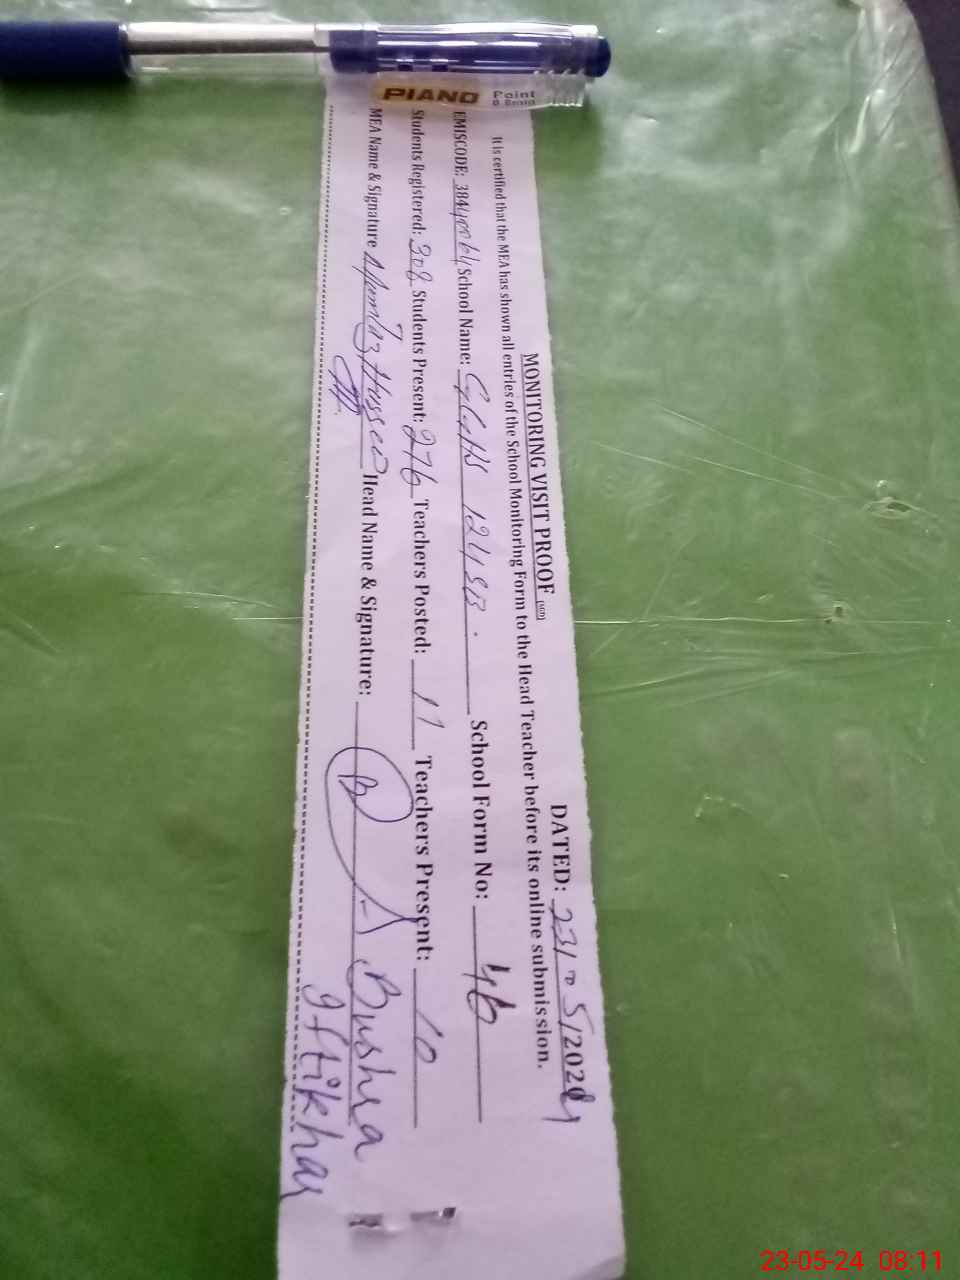 PIANO Point
0.8mm
MONITORING VISIT PROOF (SED) DATED: 23/05/2024
It is certified that the MEA has shown all entries of the School Monitoring Form to the Head Teacher before its online submission.
EMISCODE: 38440064 School Name: GGHS 124 SB. School Form No: 46
Students Registered: 308 Students Present: 276 Teachers Posted: 11 Teachers Present: 10
MEA Name & Signature Mumtaz Hussain Head Name & Signature: Bushra
Iftikhar
23-05-24 08:11